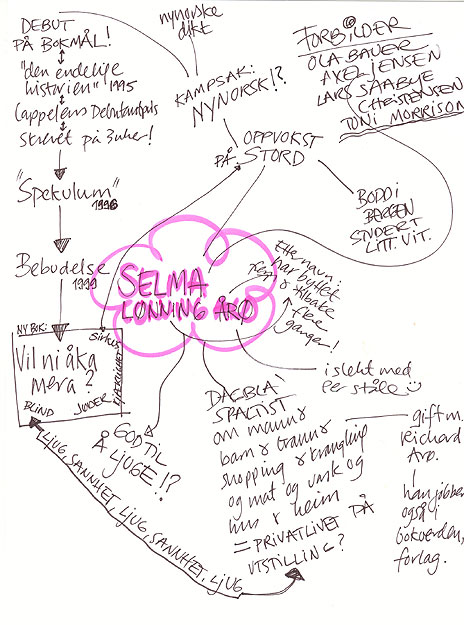 DEBUT
PÅ BOKMÅL!
"den endelige
historien" 1995
Cappelens Debutantpris
skrevet på 3 uker!
"Spekulum"
1996
Bebudelse
1999
NY BOK:
Vil ni åka
mera?
sirkus
BLIND
JØDER
nynorske
dikt
KAMPSAK:
NYNORSK!?
OPPVOKST
PÅ STORD
FORBILDER
OLA BAUER
AXEL JENSEN
LARS SAABYE
CHRISTENSEN
TONI MORRISON
BODD i
BERGEN
STUDERT
LITT. VIT.
SELMA
LØNNING ÅRØ
Etternavn:
har byttet
frem & tilbake
flere
ganger!
i slekt med
Per Ståle
GOD TIL
Å LJUGE!?
LJUG, SANNHET, LJUG, SANNHET, LJUG
DAGBLA'
SPALTIST
om mann &
barn & trann &
shopping & krangling
og mat og vask og
hus & heim
= PRIVATLIVET PÅ
UTSTILLING?
gift m.
Richard
Årø.
han jobber
også i
bokverden,
forlag.